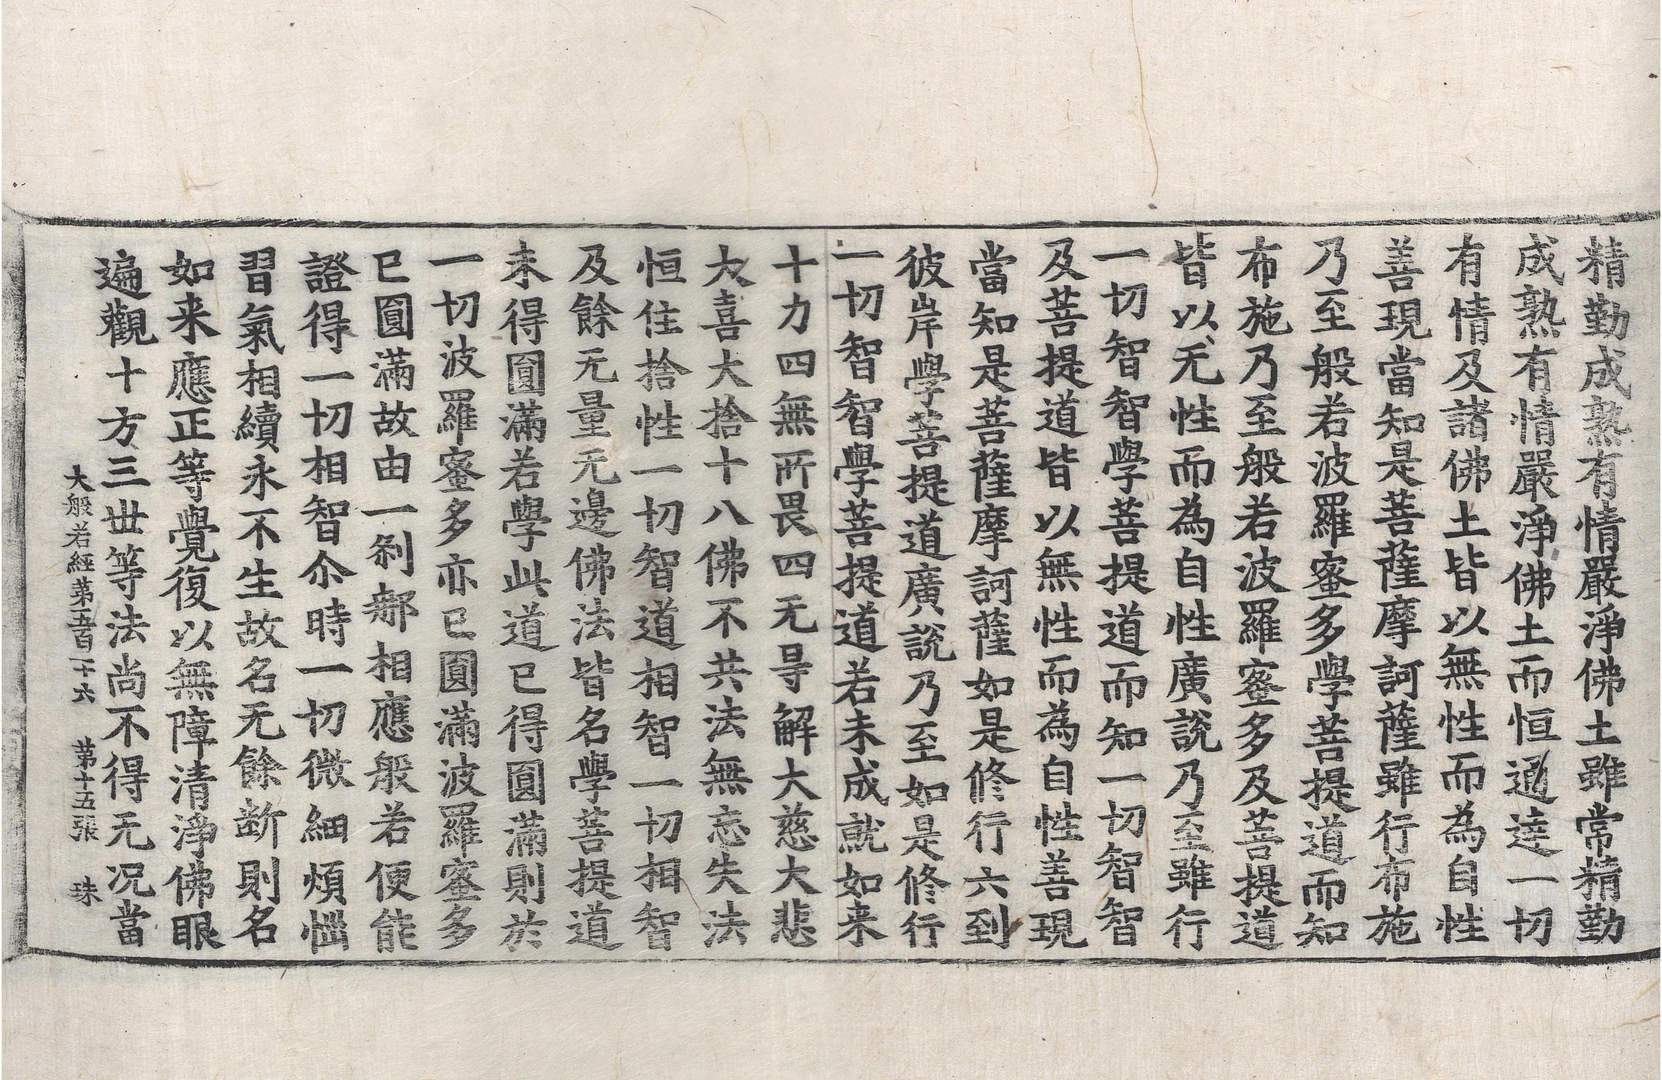 精勤成熟有情嚴淨佛土雖常精勤
成熟有情嚴淨佛土而恒通達一切
有情及諸佛土皆以無性而為自性
善現當知是菩薩摩訶薩雖行布施
乃至般若波羅蜜多學菩提道而知
布施乃至般若波羅蜜多及菩提道
皆以无性而為自性廣說乃至雖行
一切智智學菩提道而知一切智智
及菩提道皆以無性而為自性善現
當知是菩薩摩訶薩如是修行六到
彼岸學菩提道廣說乃至如是修行
一切智智學菩提道若未成就如来
十力四無所畏四无㝵解大慈大悲
大喜大捨十八佛不共法無忘失法
恒住捨性一切智道相智一切相智
及餘无量无邊佛法皆名學菩提道
未得圓滿若學此道已得圓滿則於
一切波羅蜜多亦已圓滿波羅蜜多
已圓滿故由一刹那相應般若便能
證得一切相智尒時一切微細煩惱
習氣相續永不生故名无餘断則名
如来應正等覺復以無障清淨佛眼
遍觀十方三世等法尚不得无况當
大般若經第五百二十六 第十五張 珠